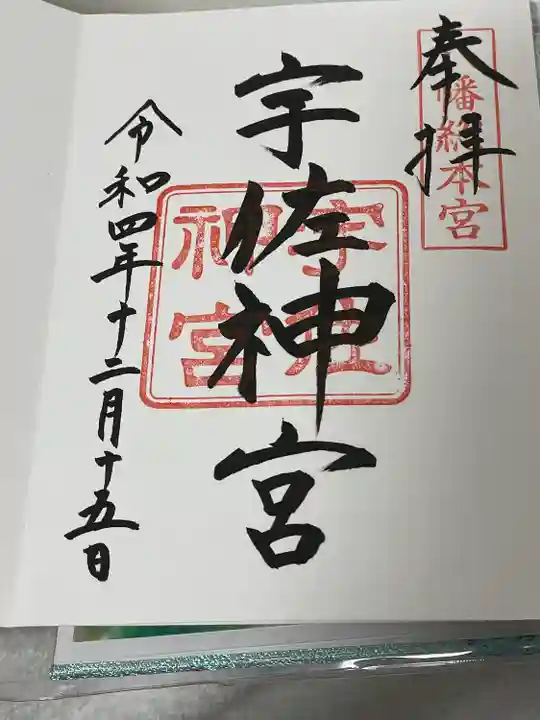 奉拝
八幡総本宮
宇佐神宮
宇佐
神宮
令和四年十二月十五日